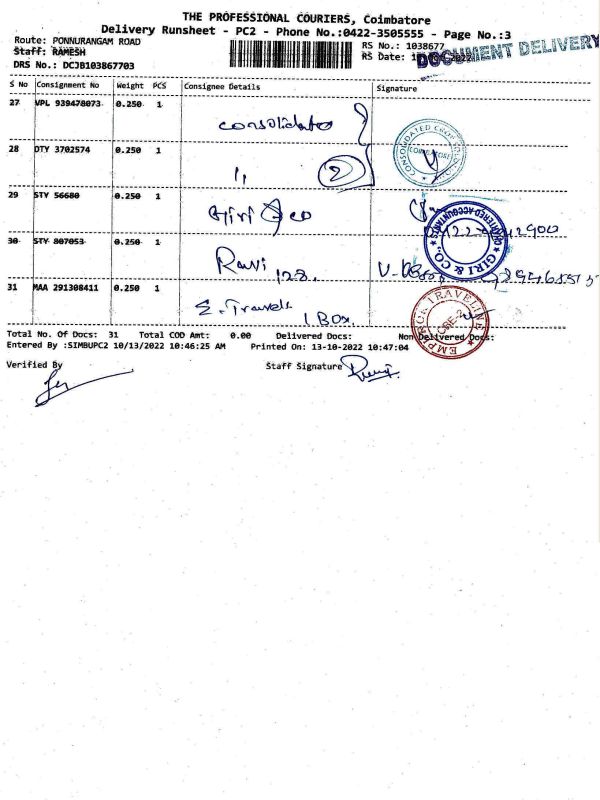 THE PROFESSIONAL COURIERS, Coimbatore
Delivery Runsheet - PC2 - Phone No.:0422-3505555 - Page No.:3
Route: PONNURANGAM ROAD
Staff: RAMESH
DRS No.: DCJB103867703
RS No.: 1038677
RS Date:
DOCUMENT DELIVERY
S No Consignment No Weight PCS Consignee Details Signature
27 VPL 939478073 0.250 1
consolidate
28 DTY 3702574 0.250 1
1, 2
CONSOLIDATED
29 STY 56680 0.250 1
Giri & co
GIRI & CO.,
CHARTERED ACCOUNTANTS
30 STY 807053 0.250 1
Ravi 128
31 MAA 291308411 0.250 1
E. Travels 1 Box
Total No. Of Docs: 31 Total COD Amt: 0.00 Delivered Docs: Non Delivered Docs:
Entered By :SIMBUPC2 10/13/2022 10:46:25 AM Printed On: 13-10-2022 10:47:04
Verified By Staff Signature